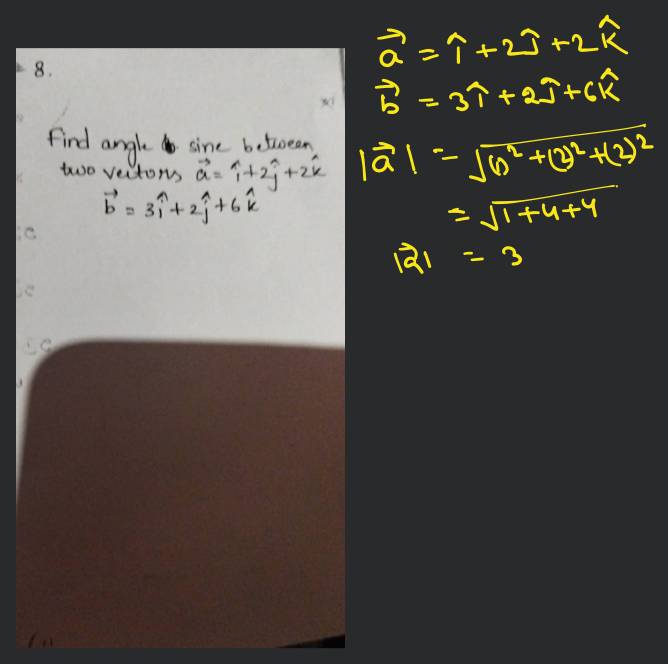 8.
Find angle & sine between
two vectors a⃗ = î+2ĵ+2k̂
b⃗ = 3î+2ĵ+6k̂
a⃗ = î+2ĵ+2k̂
b⃗ = 3î+2ĵ+6k̂
|a⃗| = √(1)²+(2)²+(2)²
= √1+4+4
|a⃗| = 3